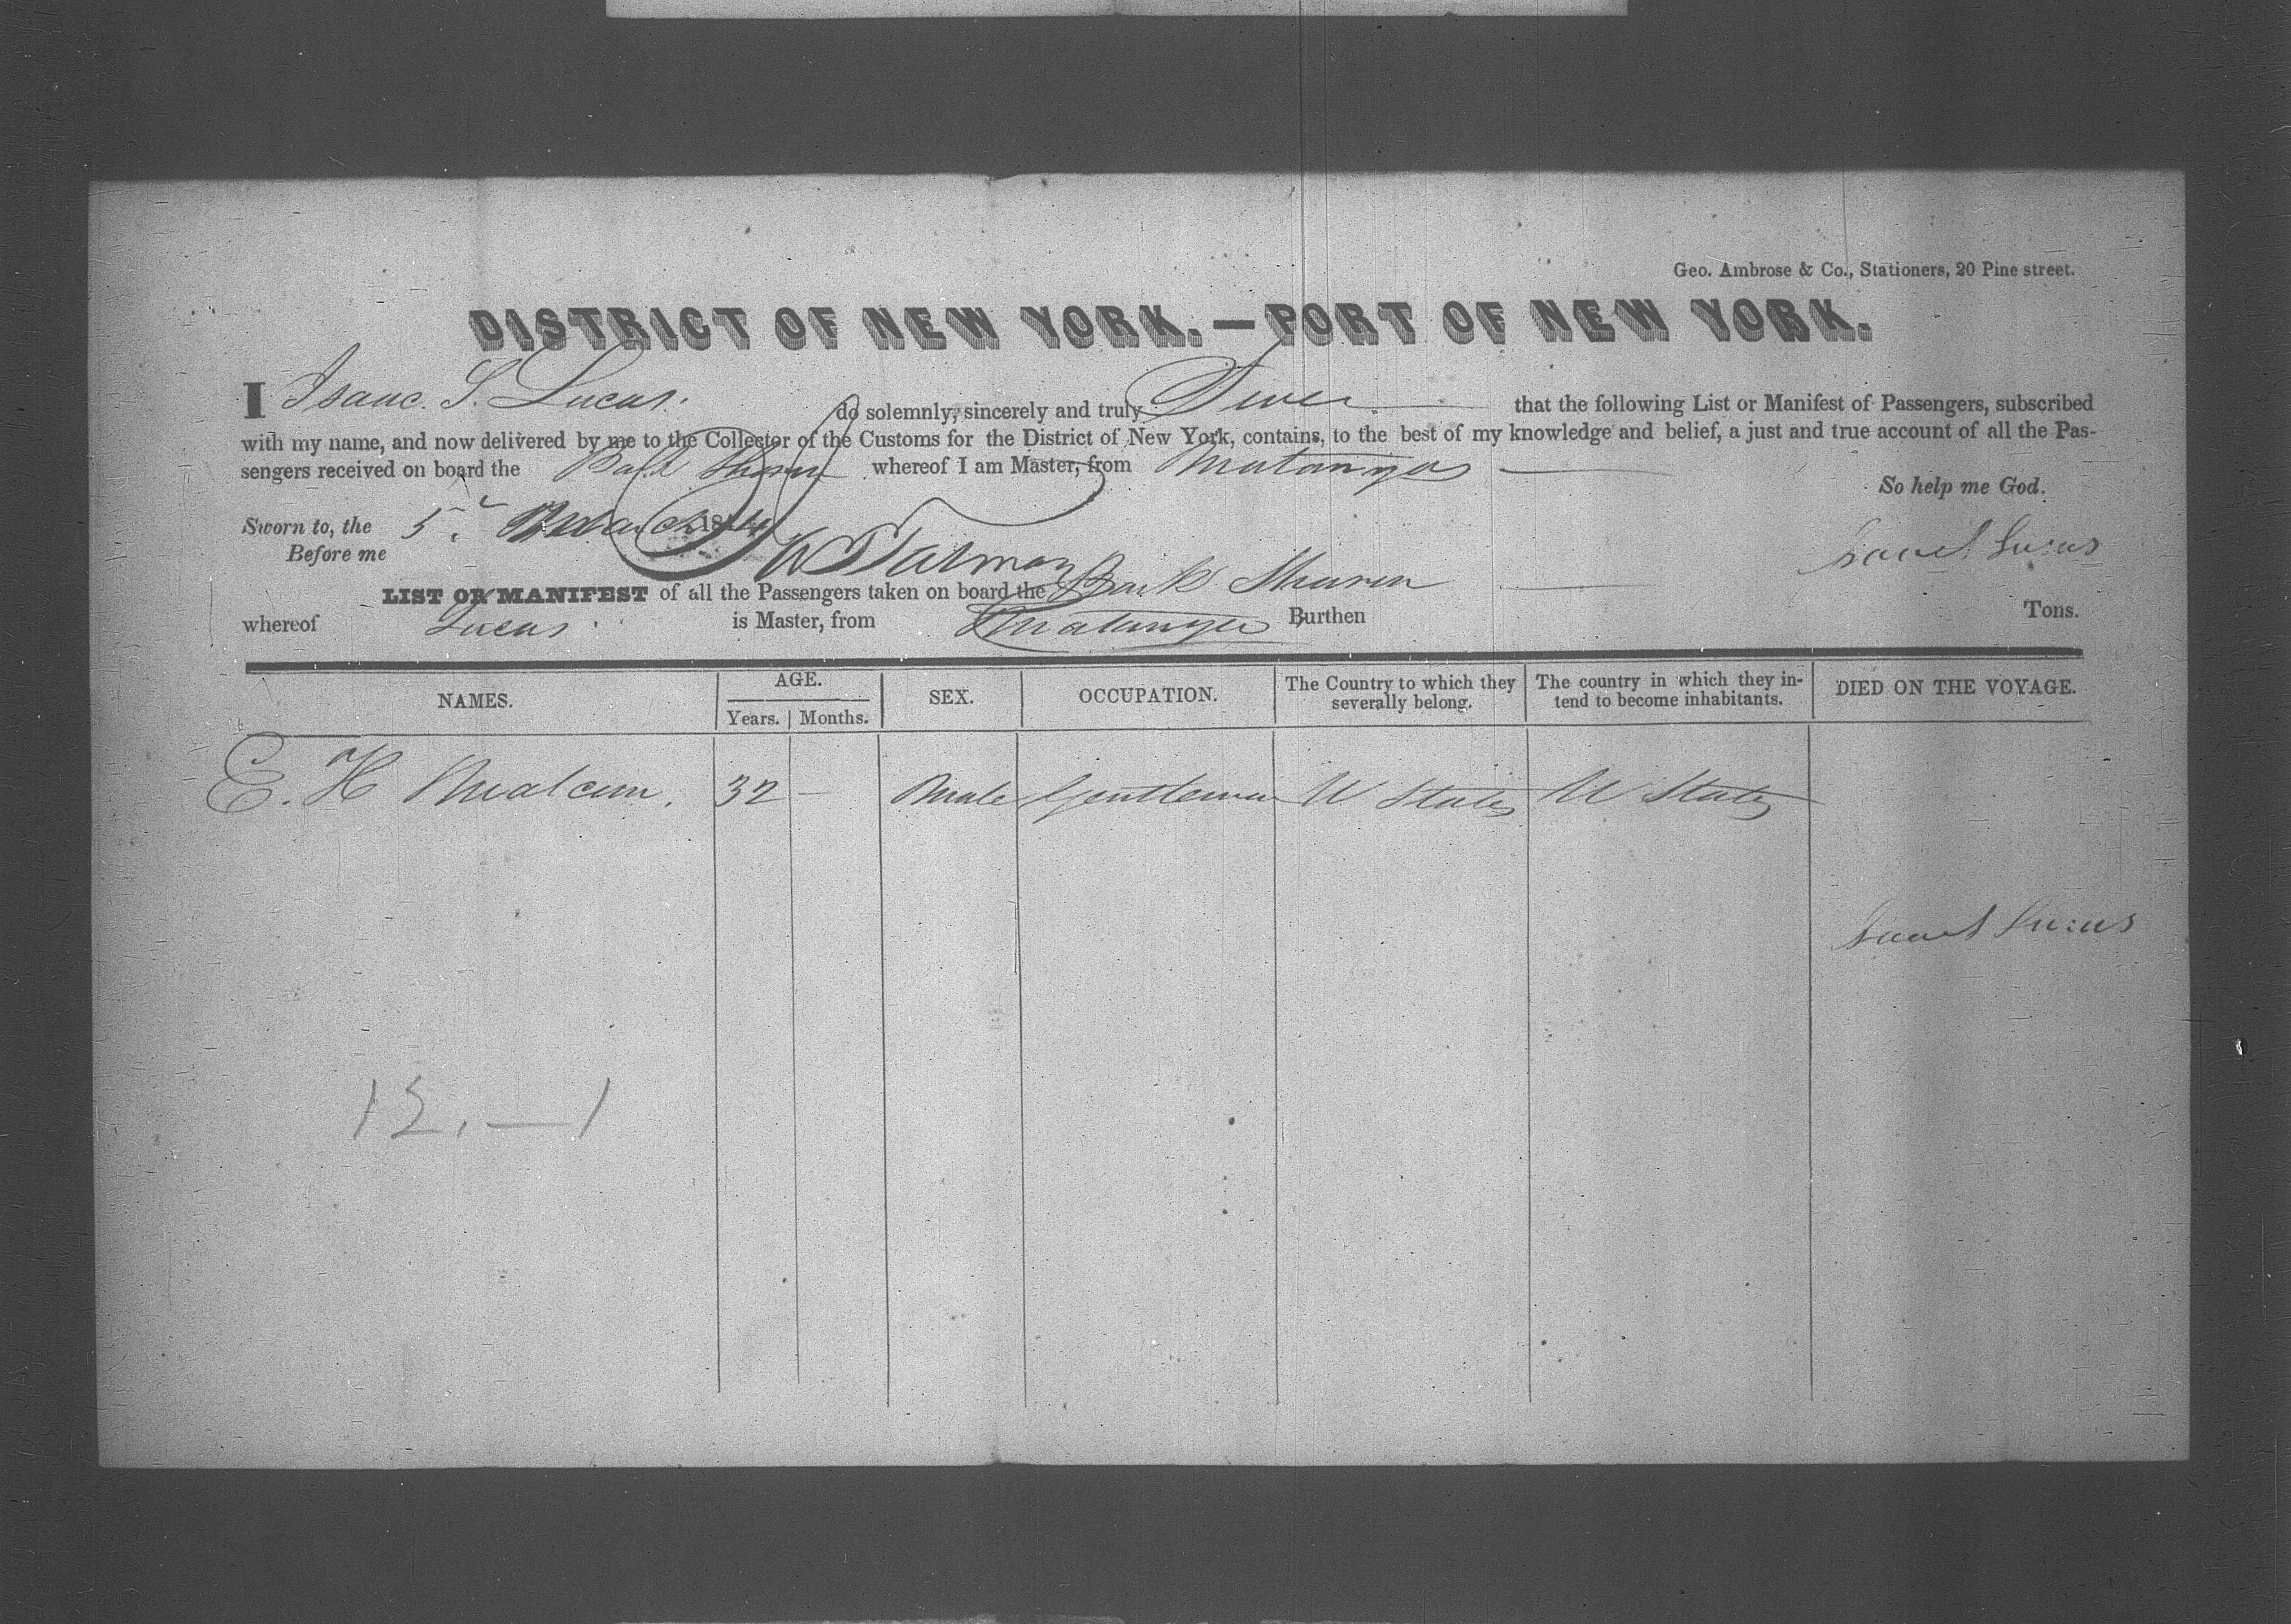 Geo. Ambrose & Co., Stationers, 20 Pine street.
DISTRICT OF NEW YORK.—PORT OF NEW YORK.
I Isaac. S. Lucas. do solemnly, sincerely and truly Swear that the following List or Manifest of Passengers, subscribed
with my name, and now delivered by me to the Collector of the Customs for the District of New York, contains, to the best of my knowledge and belief, a just and true account of all the Pas-
sengers received on board the whereof I am Master, from Matanzas
So help me God.
Sworn to, the 5. March 1844
Before me Isaac S Lucas
LIST OR MANIFEST of all the Passengers taken on board the Bark
whereof Lucas is Master, from Matanzas Burthen Tons.
NAMES. AGE. SEX. OCCUPATION. The Country to which they severally belong. The country in which they in-tend to become inhabitants. DIED ON THE VOYAGE.
Years. Months.
E. H Malcum. 32 — Male Gentleman U States U States
Isaac S Lucas
12. — 1